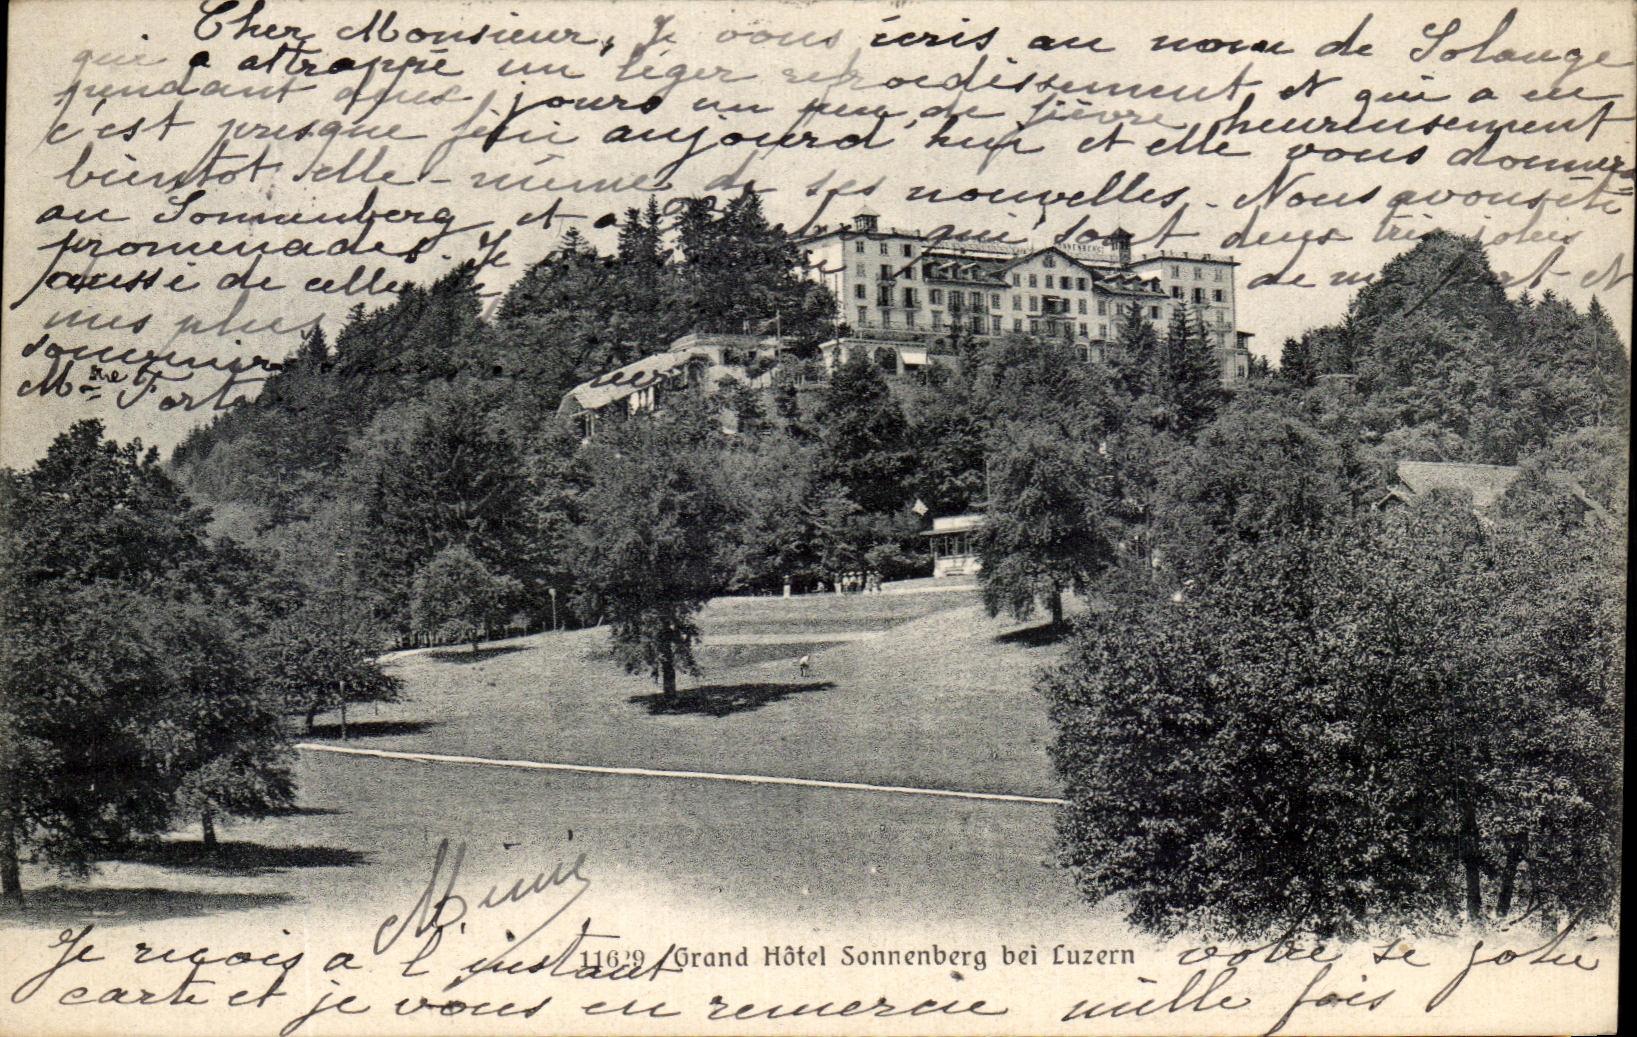 Cher Monsieur, Je vous écris au nom de Solange
qui a attrappé un léger refroidissement et qui a eu
pendant deux jours un peu de fièvre, heureusement
c'est presque fini aujourd'hui et elle vous donnera
bientot elle-même de ses nouvelles. Nous avons été
au Sonnenberg et a qui sont deux très jolies
promenades. Je de ma part et
aussi de celle
mes plus
souvenirs
Mme
SONNENBERG
Mimi
Je reçois a l'instant votre si jolie
11629 Grand Hôtel Sonnenberg bei Luzern
carte et je vous en remercie mille fois